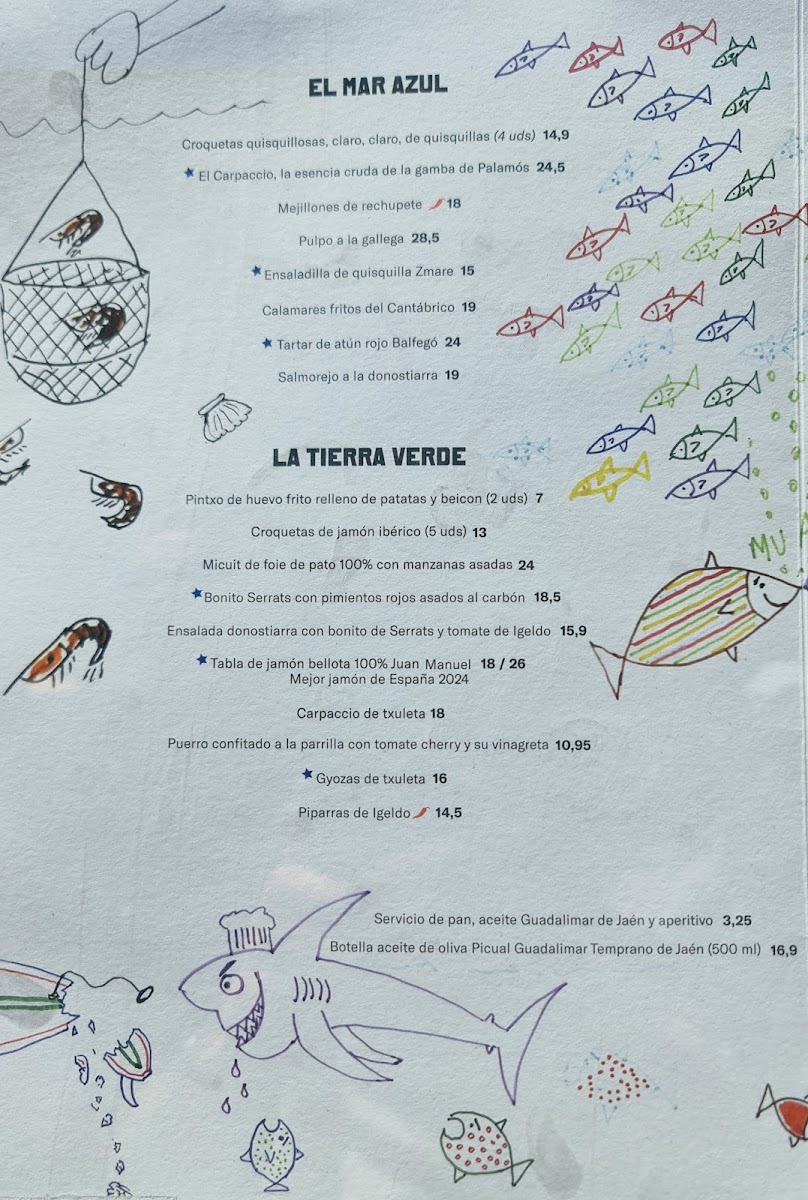 EL MAR AZUL
Croquetas quisquillosas, claro, claro, de quisquillas (4 uds) 14,9
El Carpaccio, la esencia cruda de la gamba de Palamós 24,5
Mejillones de rechupete 18
Pulpo a la gallega 28,5
Ensaladilla de quisquilla Zmare 15
Calamares fritos del Cantábrico 19
Tartar de atún rojo Balfegó 24
Salmorejo a la donostiarra 19
LA TIERRA VERDE
Pintxo de huevo frito relleno de patatas y beicon (2 uds) 7
Croquetas de jamón ibérico (5 uds) 13
Micuit de foie de pato 100% con manzanas asadas 24
Bonito Serrats con pimientos rojos asados al carbón 18,5
MU
Ensalada donostiarra con bonito de Serrats y tomate de Igeldo 15,9
Tabla de jamón bellota 100% Juan Manuel 18 / 26
Mejor jamón de España 2024
Carpaccio de txuleta 18
Puerro confitado a la parrilla con tomate cherry y su vinagreta 10,95
Gyozas de txuleta 16
Piparras de Igeldo 14,5
Servicio de pan, aceite Guadalimar de Jaén y aperitivo 3,25
Botella aceite de oliva Picual Guadalimar Temprano de Jaén (500 ml) 16,9